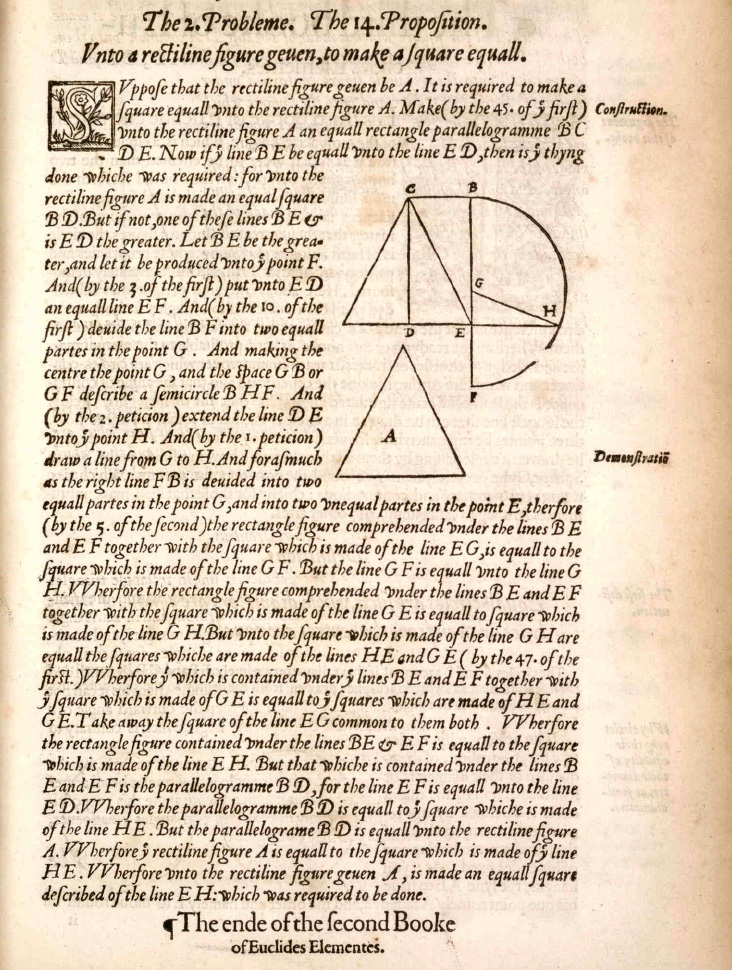 The 2. Probleme. The 14. Propoſition.
Vnto a rectiline figure geuen, to make a ſquare equall.
SVppoſe that the rectiline figure geuen be A. It is required to make a
ſquare equall vnto the rectiline figure A. Make (by the 45. of ẏ firſt)
Conſtruction.
vnto the rectiline figure A an equall rectangle parallelogramme B C
D E. Now if ẏ line B E be equall vnto the line E D, then is ẏ thyng
done whiche was required: for vnto the
rectiline figure A is made an equal ſquare
B D. But if not, one of theſe lines B E &
is E D the greater. Let B E be the grea-
ter, and let it be produced vnto ẏ point F.
And (by the 3. of the firſt) put vnto E D
an equall line E F. And (by the 10. of the
firſt) deuide the line B F into two equall
partes in the point G. And making the
centre the point G, and the ſpace G B or
G F deſcribe a ſemicircle B H F. And
(by the 2. peticion) extend the line D E
vnto ẏ point H. And (by the 1. peticion)
draw a line from G to H. And foraſmuch
as the right line F B is deuided into two
C B
G
H
D E
F
A
Demonſtratiō
equall partes in the point G, and into two vnequal partes in the point E, therfore
(by the 5. of the ſecond) the rectangle figure comprehended vnder the lines B E
and E F together with the ſquare which is made of the line E G, is equall to the
ſquare which is made of the line G F. But the line G F is equall vnto the line G
H. VVherfore the rectangle figure comprehended vnder the lines B E and E F
together with the ſquare which is made of the line G E is equall to ſquare which
is made of the line G H. But vnto the ſquare which is made of the line G H are
equall the ſquares whiche are made of the lines H E and G E (by the 47. of the
firſt.) VVherfore ẏ which is contained vnder ẏ lines B E and E F together with
ẏ ſquare which is made of G E is equall to ẏ ſquares which are made of H E and
G E. Take away the ſquare of the line E G common to them both. VVherfore
the rectangle figure contained vnder the lines B E & E F is equall to the ſquare
which is made of the line E H. But that whiche is contained vnder the lines B
E and E F is the parallelogramme B D, for the line E F is equall vnto the line
E D. VVherfore the parallelogramme B D is equall to ẏ ſquare whiche is made
of the line H E. But the parallelograme B D is equall vnto the rectiline figure
A. VVherfore ẏ rectiline figure A is equall to the ſquare which is made of ẏ line
H E. VVherfore vnto the rectiline figure geuen A, is made an equall ſquare
deſcribed of the line E H: which was required to be done.
¶The ende of the ſecond Booke
of Euclides Elementes.